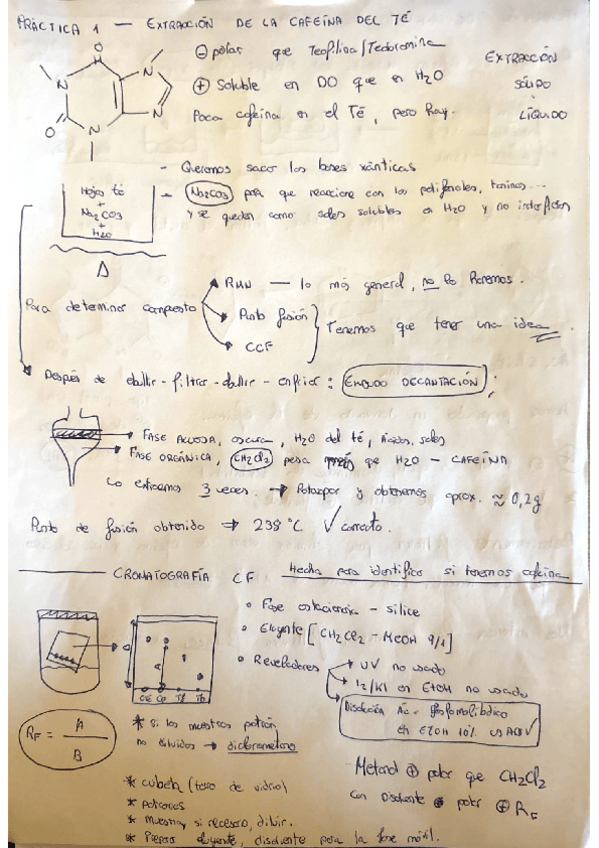 PRÁCTICA 1 — EXTRACCIÓN DE LA CAFEÍNA DEL TÉ
⊖ polar que Teofilina/Teobromina
⊕ Soluble en DO que en H2O
Poca cafeína en el Té, pero hay.
EXTRACCIÓN
SÓLIDO
LÍQUIDO
O
H
N
N
N
N
O
- Queremos sacar las bases xánticas
- Na2CO3 para que reaccione con los polifenoles, taninos...
y se queden como sales solubles en H2O y no interfieran
Hojas té
+
Na2CO3
+
H2O
Δ
Para determinar compuesto
RMN — lo más general, no lo haremos.
Punto fusión
CCF
Tenemos que tener una idea.
Después de ebullir - filtrar - ebullir - enfriar: EMBUDO DECANTACIÓN;
FASE ACUOSA, oscura, H2O del té, ácidos, sales
FASE ORGÁNICA, CH2Cl2 pesa más que H2O - CAFEÍNA
Lo extraemos 3 veces. → Rotavapor y obtenemos aprox. ≈ 0,2g
Punto de fusión obtenido ⇒ 238 °C ✓ correcto.
CROMATOGRAFÍA CF Hecha para identificar si tenemos cafeína
• Fase estacionaria - sílice
• Eluyente [CH2Cl2 - MeOH 9/1]
• Reveladores
UV no usado
I2/KI en EtOH no usado
Disolución Ác. fosfomolíbdico
en EtOH 10% USADO ✓
B
A
RF = A / B
* Si las muestras
no diluidos → diclorometano
- Metanol ⊕ polar que CH2Cl2
Con Disolvente polar ⊕ RF
* cubeta (vaso de vidrio)
* Patrones
* Muestra y si necesario, diluir.
* Preparo eluyente, disolvente para la fase móvil.